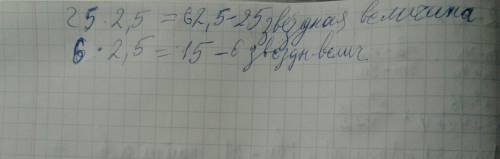 25 · 2,5 = 62,5 - 25 звездная величина
6 · 2,5 = 15 - 6 звездн. велич